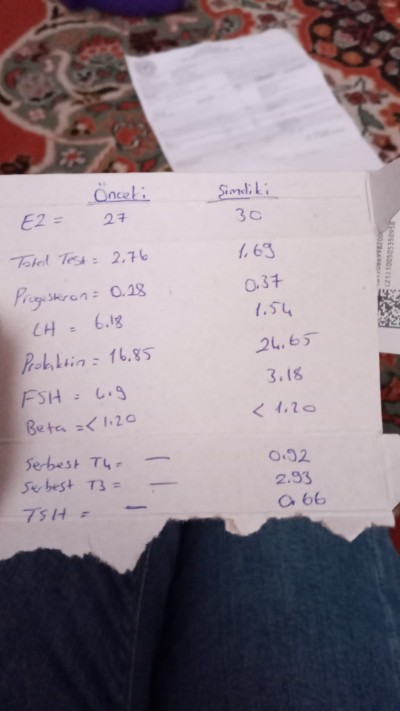 Önceki Şimdiki
E2 = 27 30
Total Test = 2.76 1.69
Progesteron = 0.28 0.37
LH = 6.18 1.54
Prolaktin = 16.85 24.65
FSH = 4.9 3.18
Beta = < 1.20 < 1.20
Serbest T4 = — 0.92
Serbest T3 = — 2.93
TSH = — 0.66